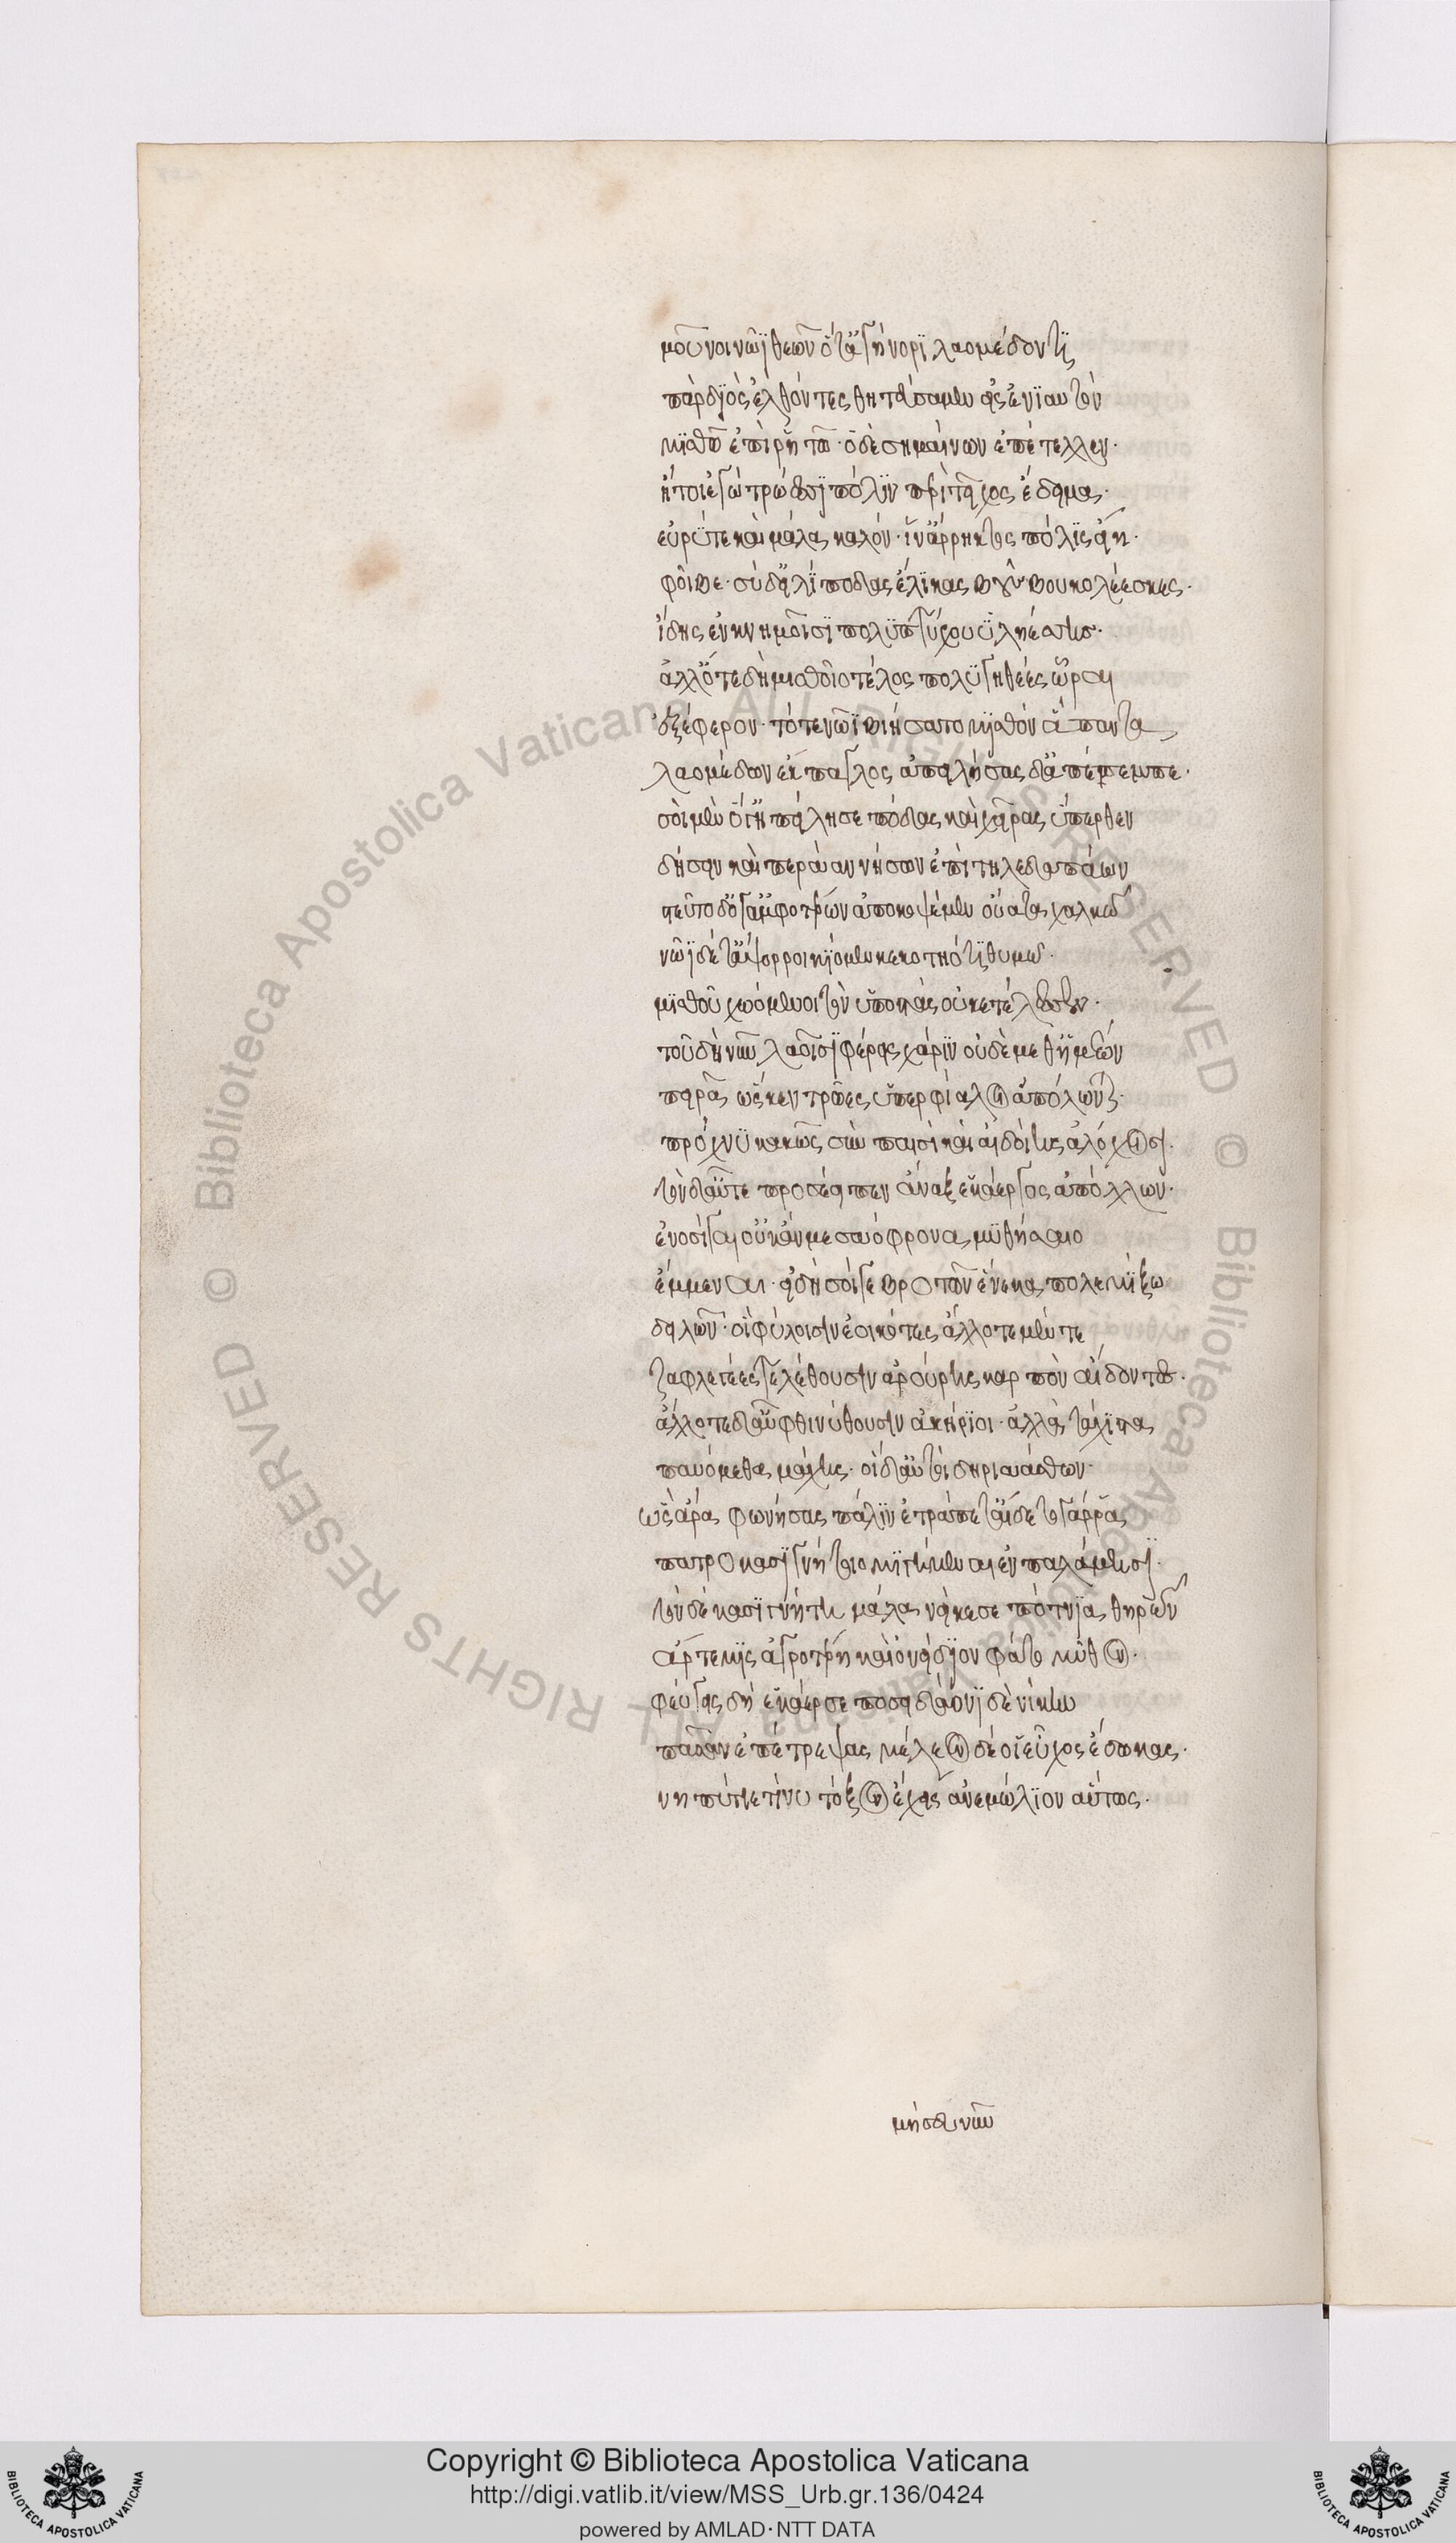 μοῦνοι νῶϊ θεῶν ὅτ' ἀγήνορϊ λαομέδοντϊ
πὰρ δϊὸς ἐλθόντες θητεύσαμεν εἰς ἐνϊαυτὸν
μϊσθῶ ἐπὶ ῥητῶ· ὁ δὲ σημαίνων ἐπέτελλεν·
ἤτοι ἐγὼ τρώεσσϊ πόλϊν πέρι τεῖχος ἔδειμα·
εὐρύ τε καὶ μάλα καλόν· ἵν' ἄρρηκτος πόλϊς εἴη·
φοῖβε· σὺ δ' εἰλίποδας ἕλϊκας βοῦς βουκολέεσκες·
ἴδης ἐν κνημοῖσϊ πολϋπτύχου ὑληέσσης·
ἀλλ' ὅτε δὴ μισθοῖο τέλος πολϋγηθέες ὧραι
ἐξέφερον· τότε νῶϊ βιήσατο μϊσθὸν ἅπαντα
λαομέδων ἔκπαγλος ἀπειλήσας δ' ἀπέπεμπε·
σοὶ μὲν ὅγ' ἠπείλησε πόδας καὶ χεῖρας ὕπερθεν
δήσειν καὶ περάαν νήσων ἐπὶ τηλεδαπάων
στεῦτο δ' ὅγ' ἀμφοτέρων ἀποκοψέμεν οὔατα χαλκῶ
νῶϊ δέ τ' ἄψορροι κΐομεν κεκοτηότϊ θυμῶ·
μϊσθοῦ χωόμενοι τὸν ὑποστὰς οὐκ ἐτέλεσσεν·
τοῦ δὴ νῦν λαοῖσϊ φέρεις χάρϊν οὐδὲ μεθ' ἡμέων
πειρᾶ ὥς κεν τρῶες ὑπερφίαλοι ἀπόλωνται·
πρόχνϋ κακῶς σὺν παισὶ καὶ αἰδοίης ἀλόχοισϊ·
τὸν δ' αὖτε προσέειπεν ἄναξ ἑκάεργος ἀπόλλων·
ἐννοσίγαι' οὐκ ἄν με σαόφρονα μϋθήσαιο
ἔμμεναι· εἰ δὴ σοίγε βροτῶν ἕνεκα πολεμΐξω
δειλῶν· οἳ φύλοισιν ἐοικότες ἄλλοτε μέν τε
ζαφλεγέες τελέθουσιν ἀρούρης καρπὸν ἔδοντες·
ἄλλοτε δ' αὖ φθινύθουσιν ἀκήρϊοι· ἀλλὰ τάχϊστα
παυόμεθα μάχης· οἱ δ' αὐτοὶ δηριαάσθων·
ὣς ἄρα φωνήσας πάλϊν ἐτράπετ' αἴδετο γάρ ῥα
πατροκασϊγνήτοιο μϊγήμεναι ἐν παλάμησϊ·
τὸν δὲ κασϊγνήτη μάλα νείκεσε πότνϊα θηρῶν
ἄρτεμϊς ἀγροτέρη καὶ ὀνείδϊον φάτο μῦθον·
φεύγεις δὴ ἑκάεργε ποσειδάωνϊ δὲ νίκην
πᾶσαν ἐπέτρεψας μέλεον δέ οἱ εὖχος ἔδωκας·
νηπύτιε τί νυ τόξον ἔχεις ἀνεμώλϊον αὔτως·
μή σευ νῦν
Copyright © Biblioteca Apostolica Vaticana
http://digi.vatlib.it/view/MSS_Urb.gr.136/0424
powered by AMLAD·NTT DATA